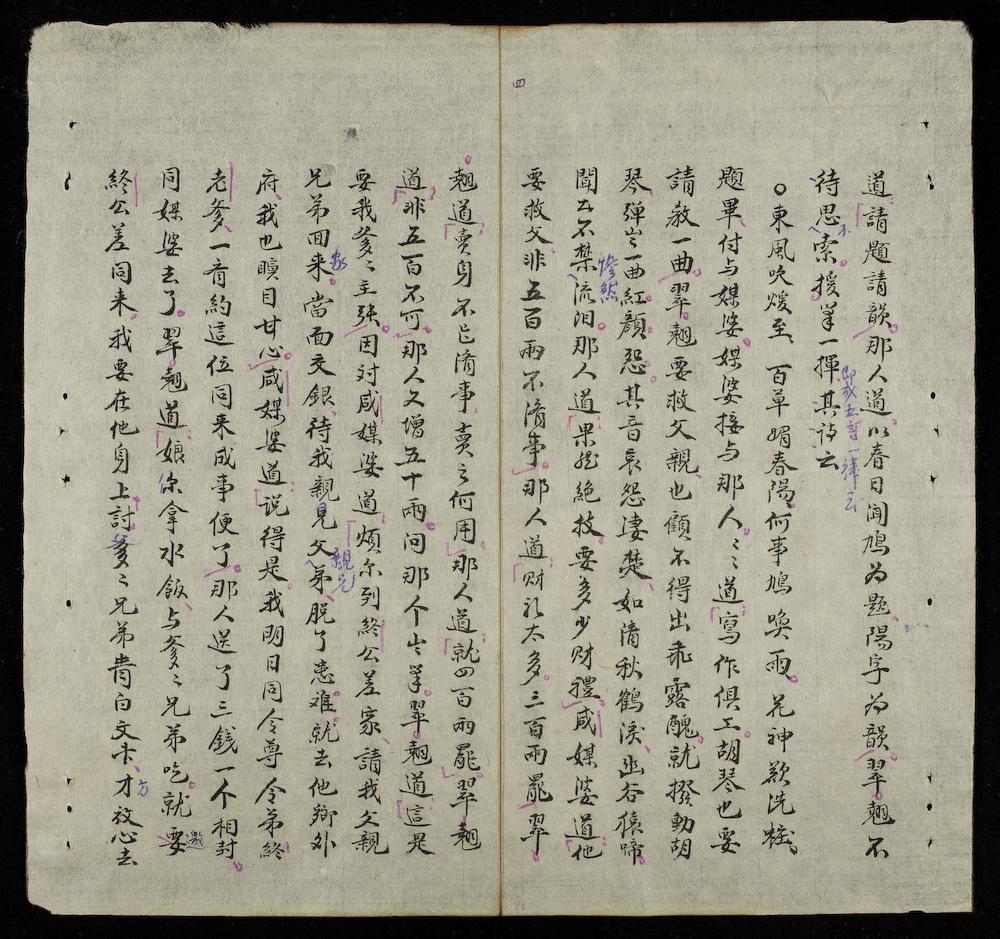 四
道請題請韻那人道以春日聞鳩為題陽字為韻翠翹不
待思索援筆一揮其詩云
○東風吹煖至百草媚春陽何事鳩喚雨花神欲洗粧
題畢付与媒婆媒婆接与那人〻〻道寫作俱工胡琴也要
請教一曲翠翹要救父親也顧不得出乖露醜就撥動胡
琴彈出一曲紅顏怨其音哀怨凄楚如清秋鶴淚幽谷猿啼
聞去不禁慘然流泪那人道果然絕技要多少財禮咸媒婆道他
要救父非五百兩不濟事那人道财礼太多三百兩罷翠
翹道賣身不已濟事賣之何用那人道就四百兩罷翠翹
道非五百不可那人又增五十兩问那个出筆翠翹道這是
要我爹〻主張因对咸媒婆道煩尔到終公差家請我父親
兄弟回来家當面交銀待我親見父親兄弟脱了患难就去他鄉外
府我也瞑目甘心咸媒婆道说得是我明日同令尊令弟終
老爹一肯約這位同来成事便了那人送了三銭一个相封
同媒婆去了翠翹道娘你拿水飯与爹〻兄弟吃就要邀
終公差同来我要在他身上討爹〻兄弟賣白文卞才方放心去
即成五言一律云